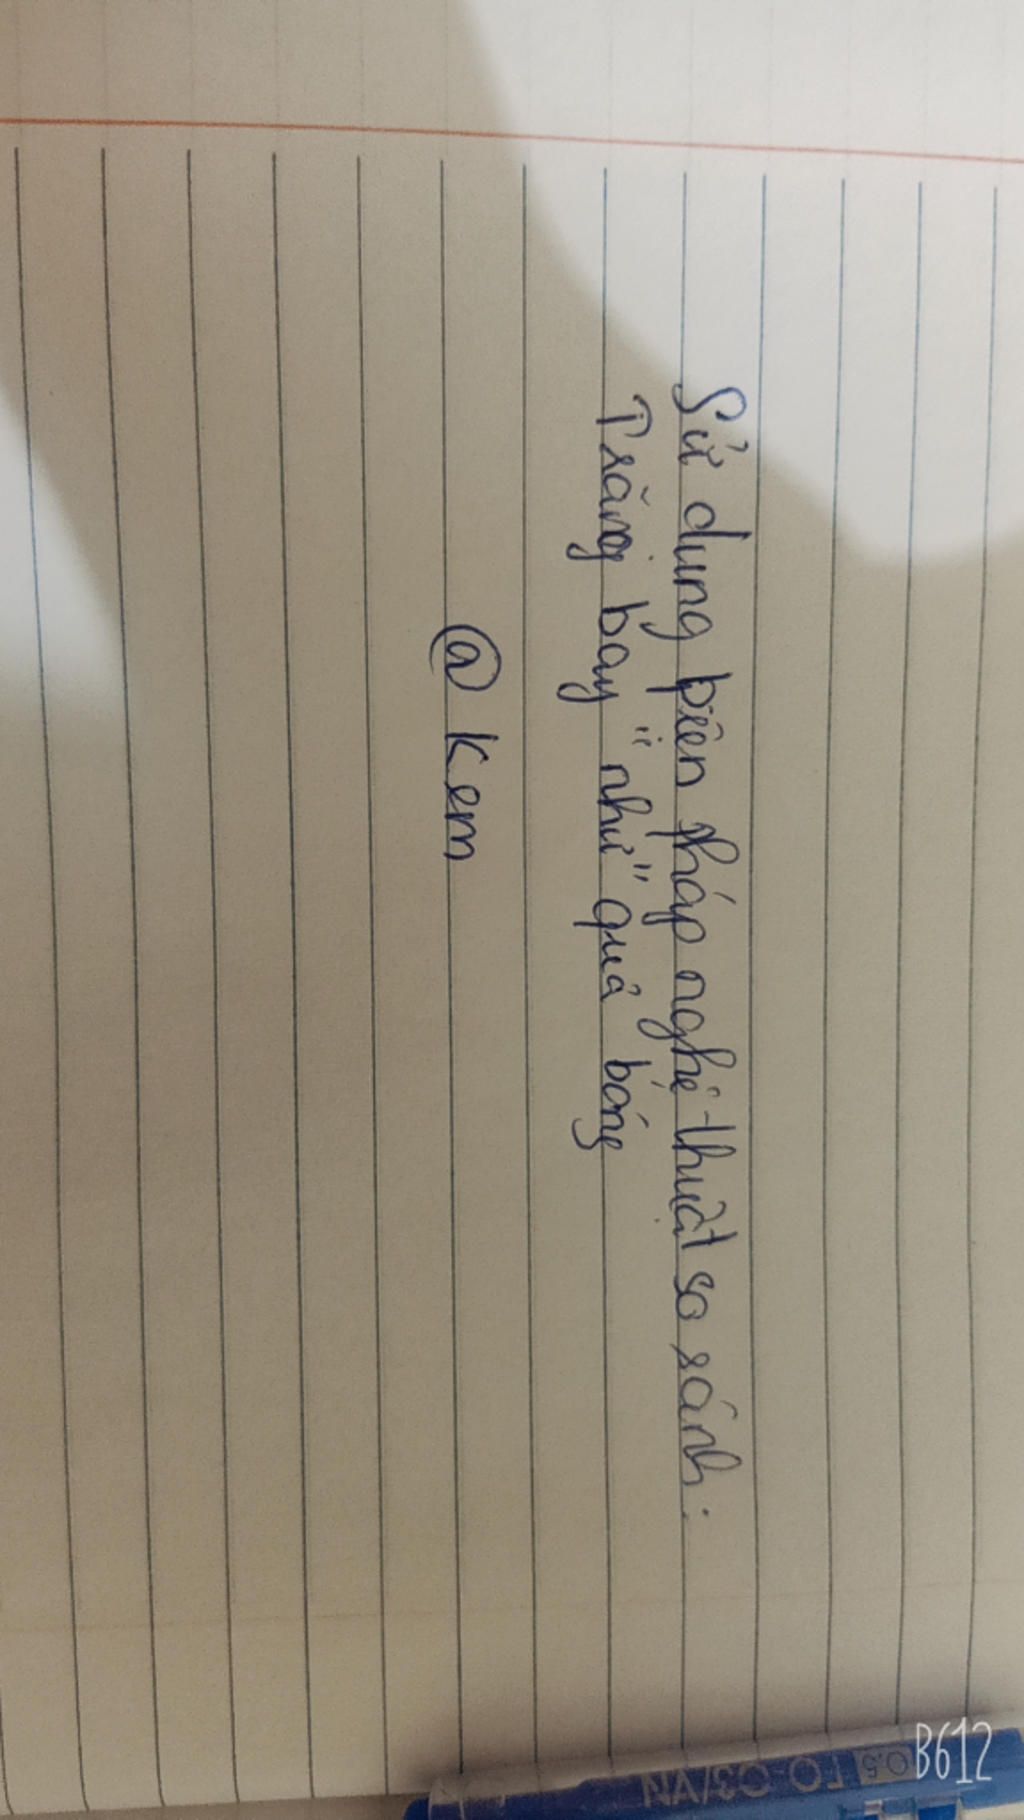 Sử dụng biện pháp nghệ thuật so sánh:
Trăng bay "như" quả bóng
@ Kem
0.5 FO-03/VN
B612